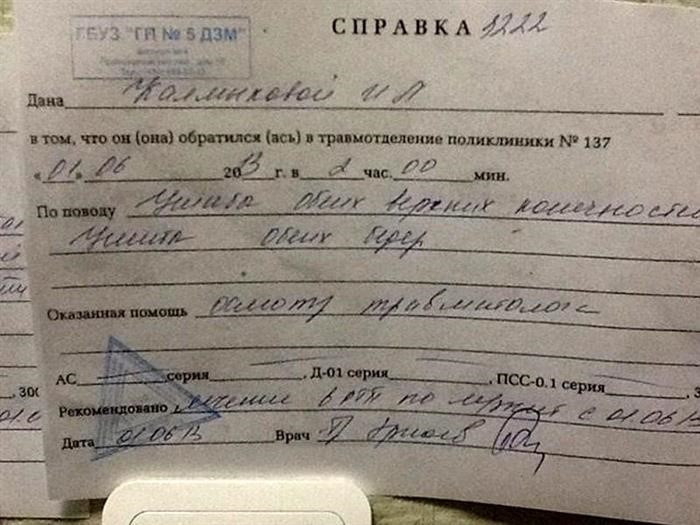 ГБУЗ "ГП № 5 ДЗМ"
СПРАВКА 1222
Дана Калмыковой И Л
в том, что он (она) обратился (ась) в травмотделение поликлиники № 137
«01» 06 2013 г. в 2 час. 00 мин.
По поводу Ушиба обеих верхних конечностей
Ушиба обеих бедер
Оказанная помощь осмотр травматолога
АС серия , Д-01 серия , ПСС-0.1 серия , З
Рекомендовано лечение в РТП по месту с 01.06 13
Дата 01 06 13 Врач
, 300